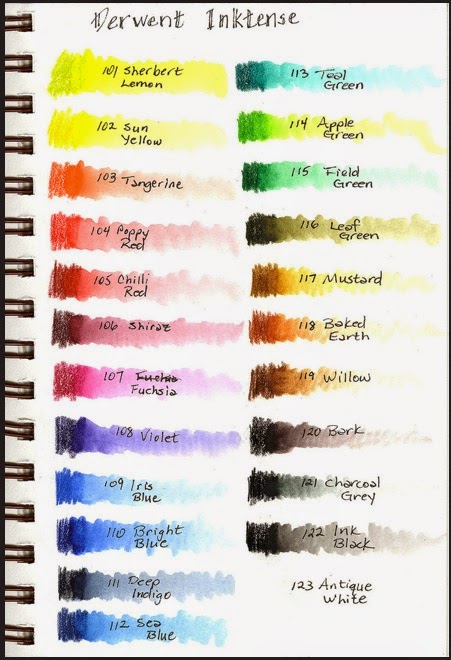 Derwent Inktense
101 Sherbert
Lemon
102 Sun
Yellow
103 Tangerine
104 Poppy
Red
105 Chilli
Red
106 Shiraz
107 Fuchia
Fuchsia
108 Violet
109 Iris
Blue
110 Bright
Blue
111 Deep
Indigo
112 Sea
Blue
113 Teal
Green
114 Apple
Green
115 Field
Green
116 Leaf
Green
117 Mustard
118 Baked
Earth
119 Willow
120 Bark
121 Charcoal
Grey
122 Ink
Black
123 Antique
White